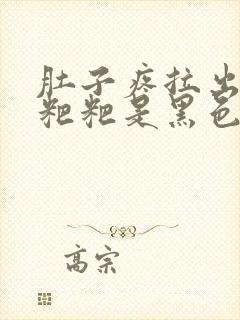 肚子疼拉出
粑粑是黑色
高宗